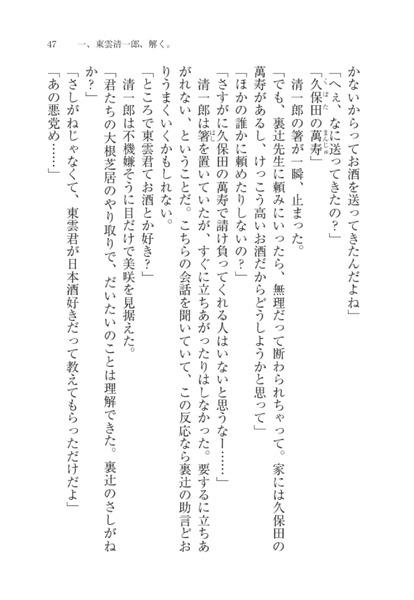 47　一、東雲清一郎、解く。
かないからってお酒を送ってきたんだよね」
「へぇ、なに送ってきたの？」
「久保田の萬寿」
くぼた
まんじゅ
清一郎の箸が一瞬、止まった。
「でも、裏辻先生に頼みにいったら、無理だって断わられちゃって。家には久保田の
萬寿があるし、けっこう高いお酒だからどうしようかと思って」
「ほかの誰かに頼めたりしないの？」
「さすがに久保田の萬寿で請け負ってくれる人はいないと思うなー……」
清一郎は箸を置いていたが、すぐに立ちあがったりはしなかった。要するに立ちあ
はし
がれない、ということだ。こちらの会話を聞いていて、この反応なら裏辻の助言どお
りうまくいくかもしれない。
「ところで東雲君てお酒とか好き？」
清一郎は不機嫌そうに目だけで美咲を見据えた。
「君たちの大根芝居のやり取りで、だいたいのことは理解できた。裏辻のさしがね
か？」
「さしがねじゃなくて、東雲君が日本酒好きだって教えてもらっただけだよ」
「あの悪党め……」